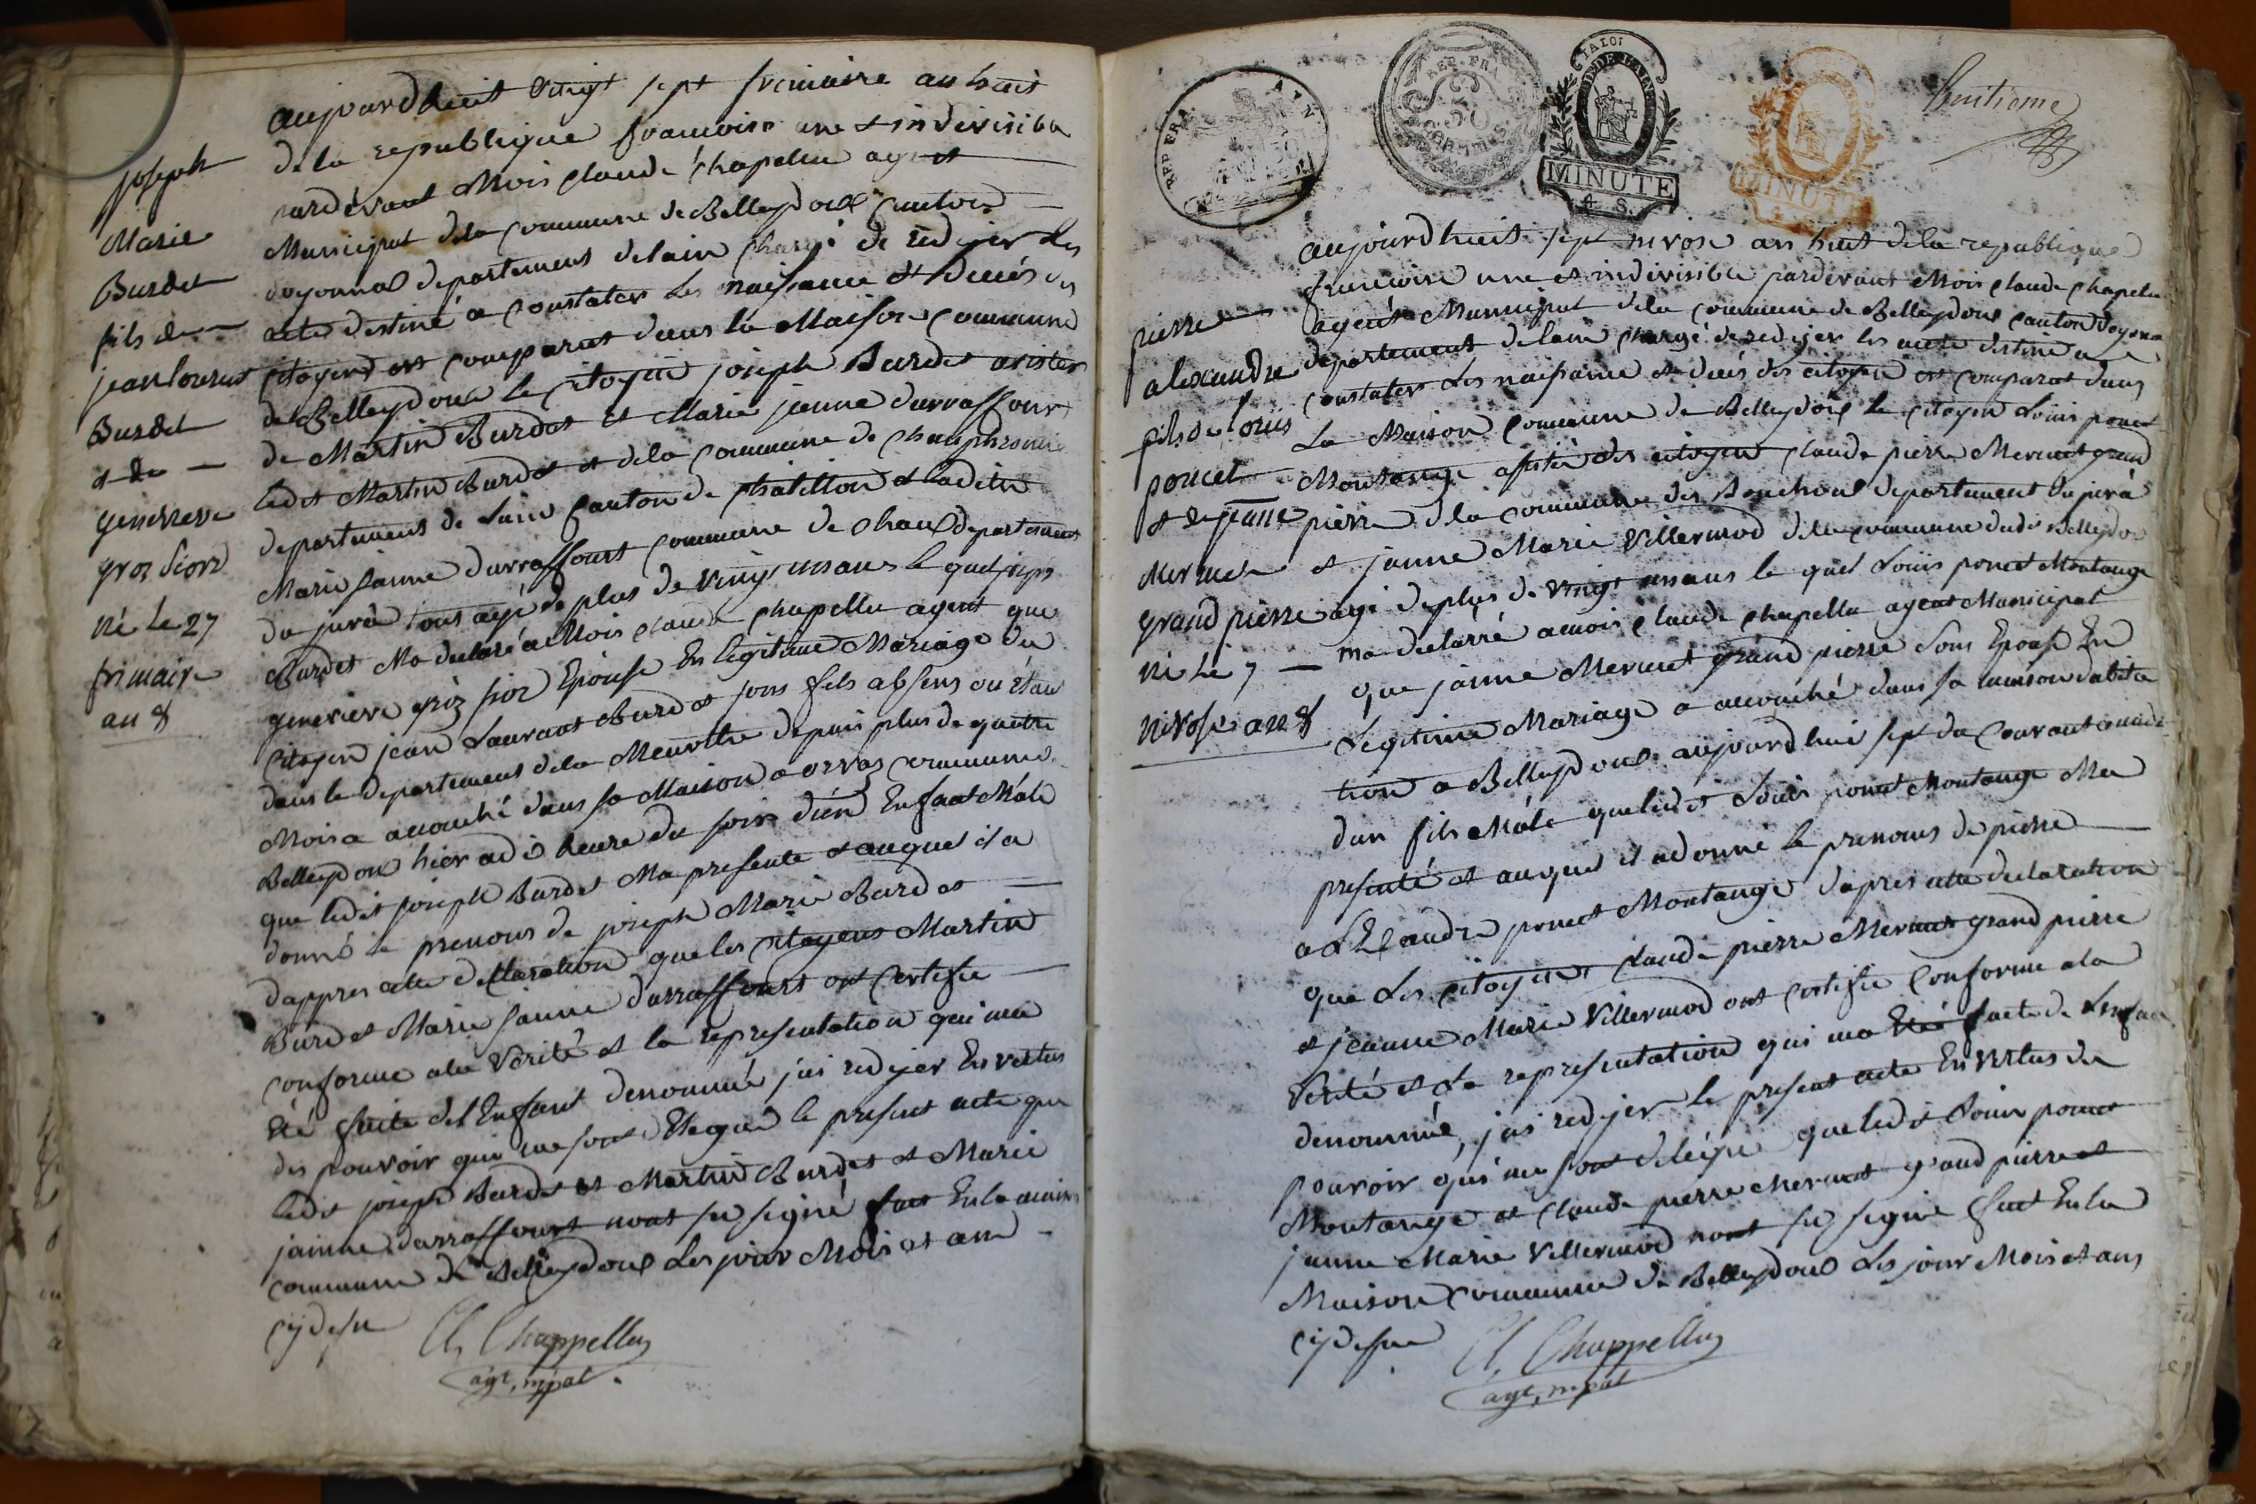 joseph
Marie
Burdet
fils de
jean lourent
Burdet
et de
genevieve
groz Sior
né le 27
frimaire
an 8
aujourdhuit vingt sept frimaire an huit
de la republique francoise une et indivisible
pardevant Mois Claude Chapellu agent
Municipal dela commune de Belleydoux canton
doyonnas departement delain chargé de redijer les
acte destiné a constater les naissance et deces des
citoyens est comparut dans la Maison commune
de Belleydoux le citoyin joseph Burdet assister
de Martin Burdet et Marie janne durraffourt
ledit Martin Burdet et dela commune de Champfromie
departement de Lain Canton de Chatillon et ladite
Marie janne durraffourt commune de Chaux departement
du jura tous agé de plus de vingt un ans le quel joseph
Burdet Ma declaré a Mois Claude Chapellu agent que
genevieve groz sior Epouse En légitime Mariage du
citoyen jean Laurant Burdet sons fils absens ou étan
dans le departement dela Meurthe depuis plus de quatre
Mois a accouché dans sa Maison a orvaz commune
Belleydoux hier a dis heure du soir dun Enfant Mâle
que ledit joseph Burdet Ma presente et auquel il a
donné le prenoms de joseph Marie Burdet
dappres cette declaration que les citoyens Martin
Burdet Marie janne durraffourt ont Certifie
conforme ala Vérité et la representation qui ma
été faite del Enfant denommé jai redijer En vertus
des pouvoir qui me sont delegué le present acte que
ledit joseph Burdet et Martin Burdet et Marie
jainne durraffourt nont su signé fait En la maison
commune de Belleydoux Les jour Mois et ans
cy desu
Cl, Chappelluz
agt, mpal
huitieme
REP. FRA.
REP. FRA.
50
LA LOI
DEP. DE L'AIN
MINUTE
4 S.
MINUTE
pierre
alexandre
fils de Louis
poncet
et de jeanne
Mermet
grand pierre
né le 7
nivose an 8
aujourdhuit sept nivose an huit dela republique
francoise une et indivisible pardevant Mois Claude Chapellu
agent Municipal dela commune de Belleydoux canton doyonna
departement delain chargé de redijer les acte destiné a
constater les naissance et deces des citoyen est comparut dans
La Maison commune de Belleydoux le citoyin Louis poncet
Montange assisté des citoyens Claude pierre Mermet grand
pierre dela commune des Bouchoux departement du jura
et janne Marie Villermod dela commune dudit Belleydou
agé de plus de vingt un ans le quel Louis poncet Montange
ma declarré a mois Claude Chapellu agent Municipal
que janne Mermet grand pierre Sons Epouse En
Legitime Mariage a accouché dans sa maison dabita
tion a Belleydoux aujourdhui sept du courant a midi
dun fils Mâle queledit Louis poncet Montange Ma
presenté et auquel il adonné le prenoms de pierre
alexandre poncet Montange dapres cette declaration
que Les citoyens Claude pierre Mermet grand pierre
et jeanne Marie Villermod ont certifie conforme ala
Verité et La representation qui ma Été faite de Lenfan
denommé, jai redijer le present acte En vertus du
pouvoir qui me sont delégué que ledit Louis poncet
Montange et Claude pierre Mermet grand pierre et
janne Marie Villermod nont su signé fait En la
Maison commune de Belleydoux Les jour Mois et ans
cy dessu
Cl, Chappelluz
agt, mpal